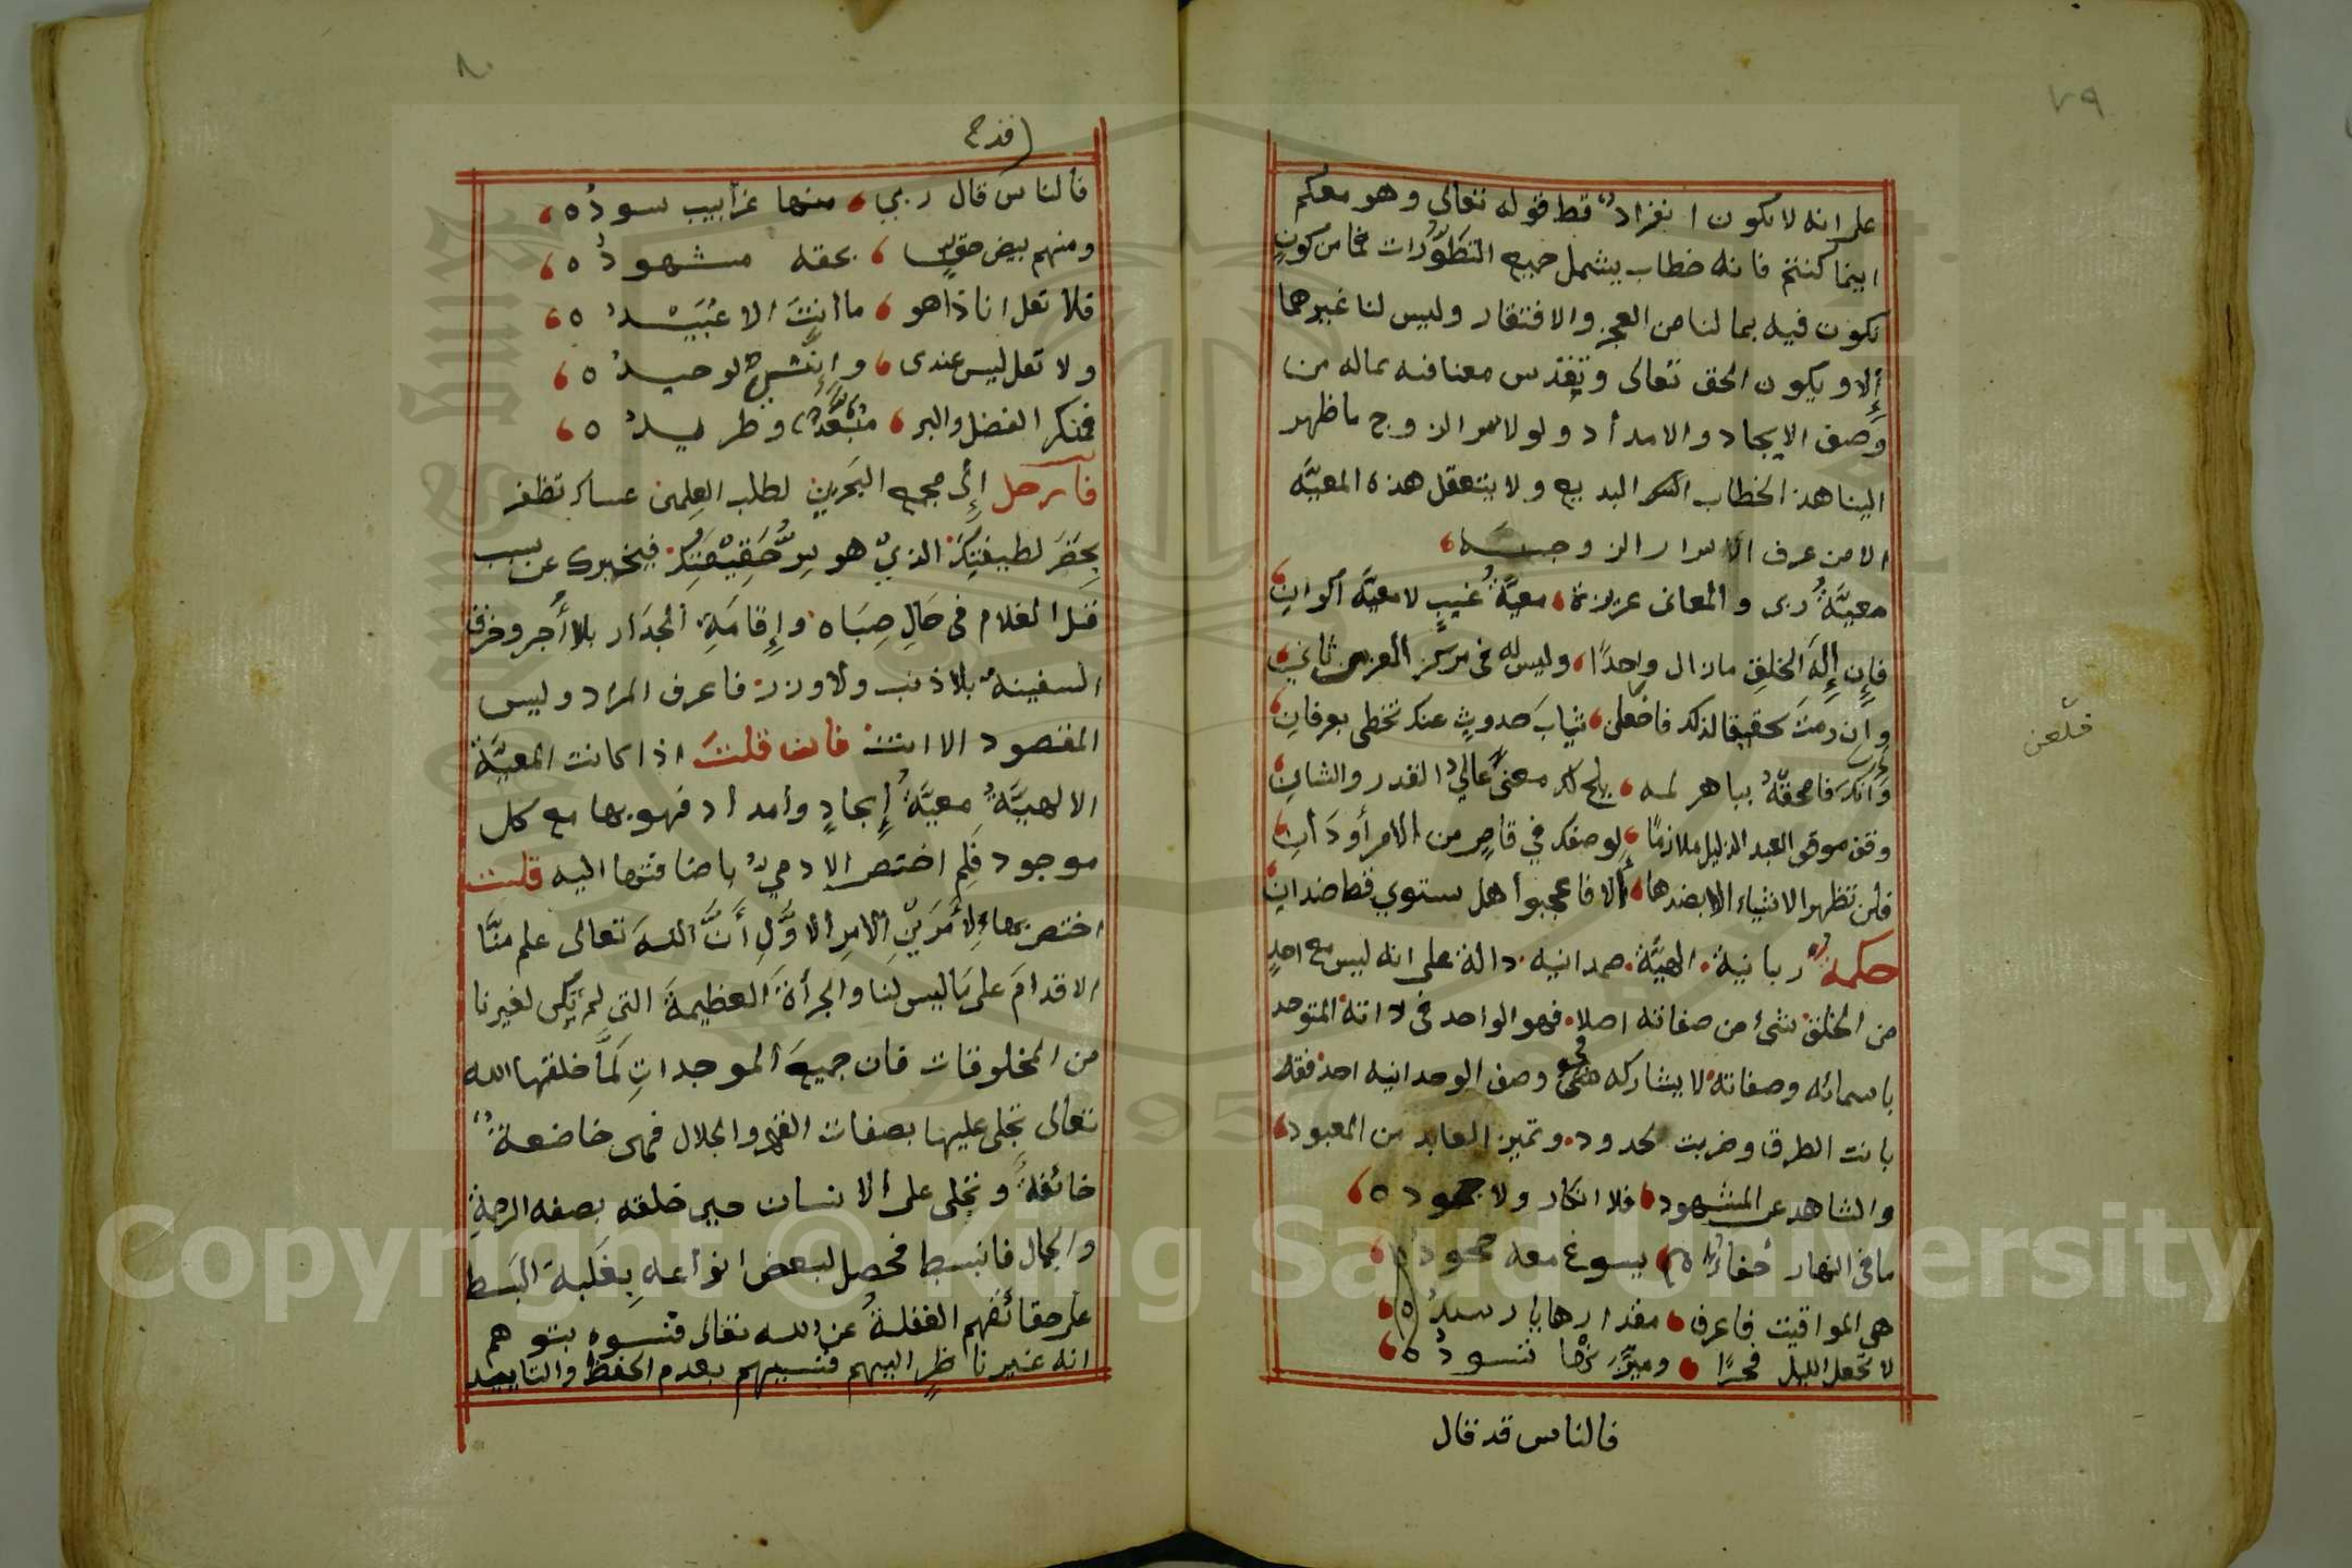 ٧٩
على انه لا يكون انفراد قط قوله تعالى وهو معكم
اينما كنتم فانه خطاب يشمل جميع التطورات فما من كون
نكون فيه بما لنا من العجز والافتقار وليس لنا غيرهما
إلا ويكون الحق تعالى وتقدس معنا فيه بماله من
وصف الايجاد والامداد ولولا سر الزوج ما ظهر
الينا هذا الخطاب السر البديع ولا يتعقل هذه المعيَّه
الا من عرف الاسرار الزوجيه
معيَّةُ ربى والمعانى عزيزة معيَّةُ غيبٍ لا معيَّة اكوانِ
فإن إله الخلقِ ما زال واحدًا وليس له فى مركز العز من ثانى
وان رمتَ تحقيقا لذلك فاخلعن ثيابَ حدوثٍ عنك تحظى بعرفانِ
فلعن
وانك فامحقه بباهر لمه يلح لك معنى عالي القدر والشانِ
وقف موقف العبد الذليل ملازمًا لوصفك في قاصٍ من الامر أو دَانِ
فلن تظهر الاشياء الا بضدها ألا فاعجبوا هل ستوي قط ضدانِ
حكمة ربانية الهيَّة صمدانيه دالة على انه ليس مع احدٍ
من الخلق شئ من صفاته اصلا فهو الواحد فى ذاته المتوحد
باسمائه وصفاته لا يشاركه فى وصف الوحدانيه احد فقد
بانت الطرق وضربت الحدود وتميز العابد من المعبود
والشاهد عن المشهود فلا انكار ولا جحود ه
ما فى النهار خفاءُ ه يسوغ معه جحود ه
هى المواقيت فاعرف مقدارها يا رسيدُ ه
لا تجعل الليل فجرًا وميز تسودُ ه
فالناس قد قال
٨٠
قد ح
فالناس قال ربي منها غرابيب سودُ ه
ومنهم بيض بحقه مشهودُ ه
فلا تقل انا ذا هو ما انتَ الا عُبَيْدُ ه
ولا تقل ليس عندى الوحيدُ ه
فمنكر الفضل والبر مُبَعَّدٌ وطريدُ ه
فارحل إلى مجمع البَحرينِ لطلب العِلمين عساك تظفر
بخضر لطيفتِكَ الذيْ هو سِرُّ حَقِيْقَتِكَ فيخبرك عن سبب
قتل الغلام فى حَالِ صِبَاه وإِقامَةِ الجدَار بلا أَجر وخرق
السفينة بلا ذنب ولا وزر فاعرف المراد وليس
المقصود الا انت فان قلتَ اذا كانت المعيَّة
الالهيَّةُ معيَّةُ إيجادٍ وامداد فهو بها مع كل
موجود فلِم اختص الادمي باضافتها اليه قلت
اختص بها لأمرَيْنِ الامر الاوَّلِ أَنَّ اللهَ تعالى علم منَّا
الاقدامَ على ما ليس لنا والجرأةَ العظيمةَ التى لم تكن لغيرنا
من المخلوقات فان جميعَ الموجداتِ لمَّا خلقها الله
تعالى تجلى عليها بصفات القهر والجلال فهى خاضعة
خائفةُ وتجلى على الانسان حين خلقه بصفه الرحمةِ
والجمال فانبسط فحصل لبعض انواعه بِغَلبة البَسط
على حقائقهم الغفلةُ عن الله تعالى فنسوه بتوهم
انه غير ناظرٍ اليهم فنسيهم بعدم الحفظ والتاييد
Copyright © King Saud University
1957